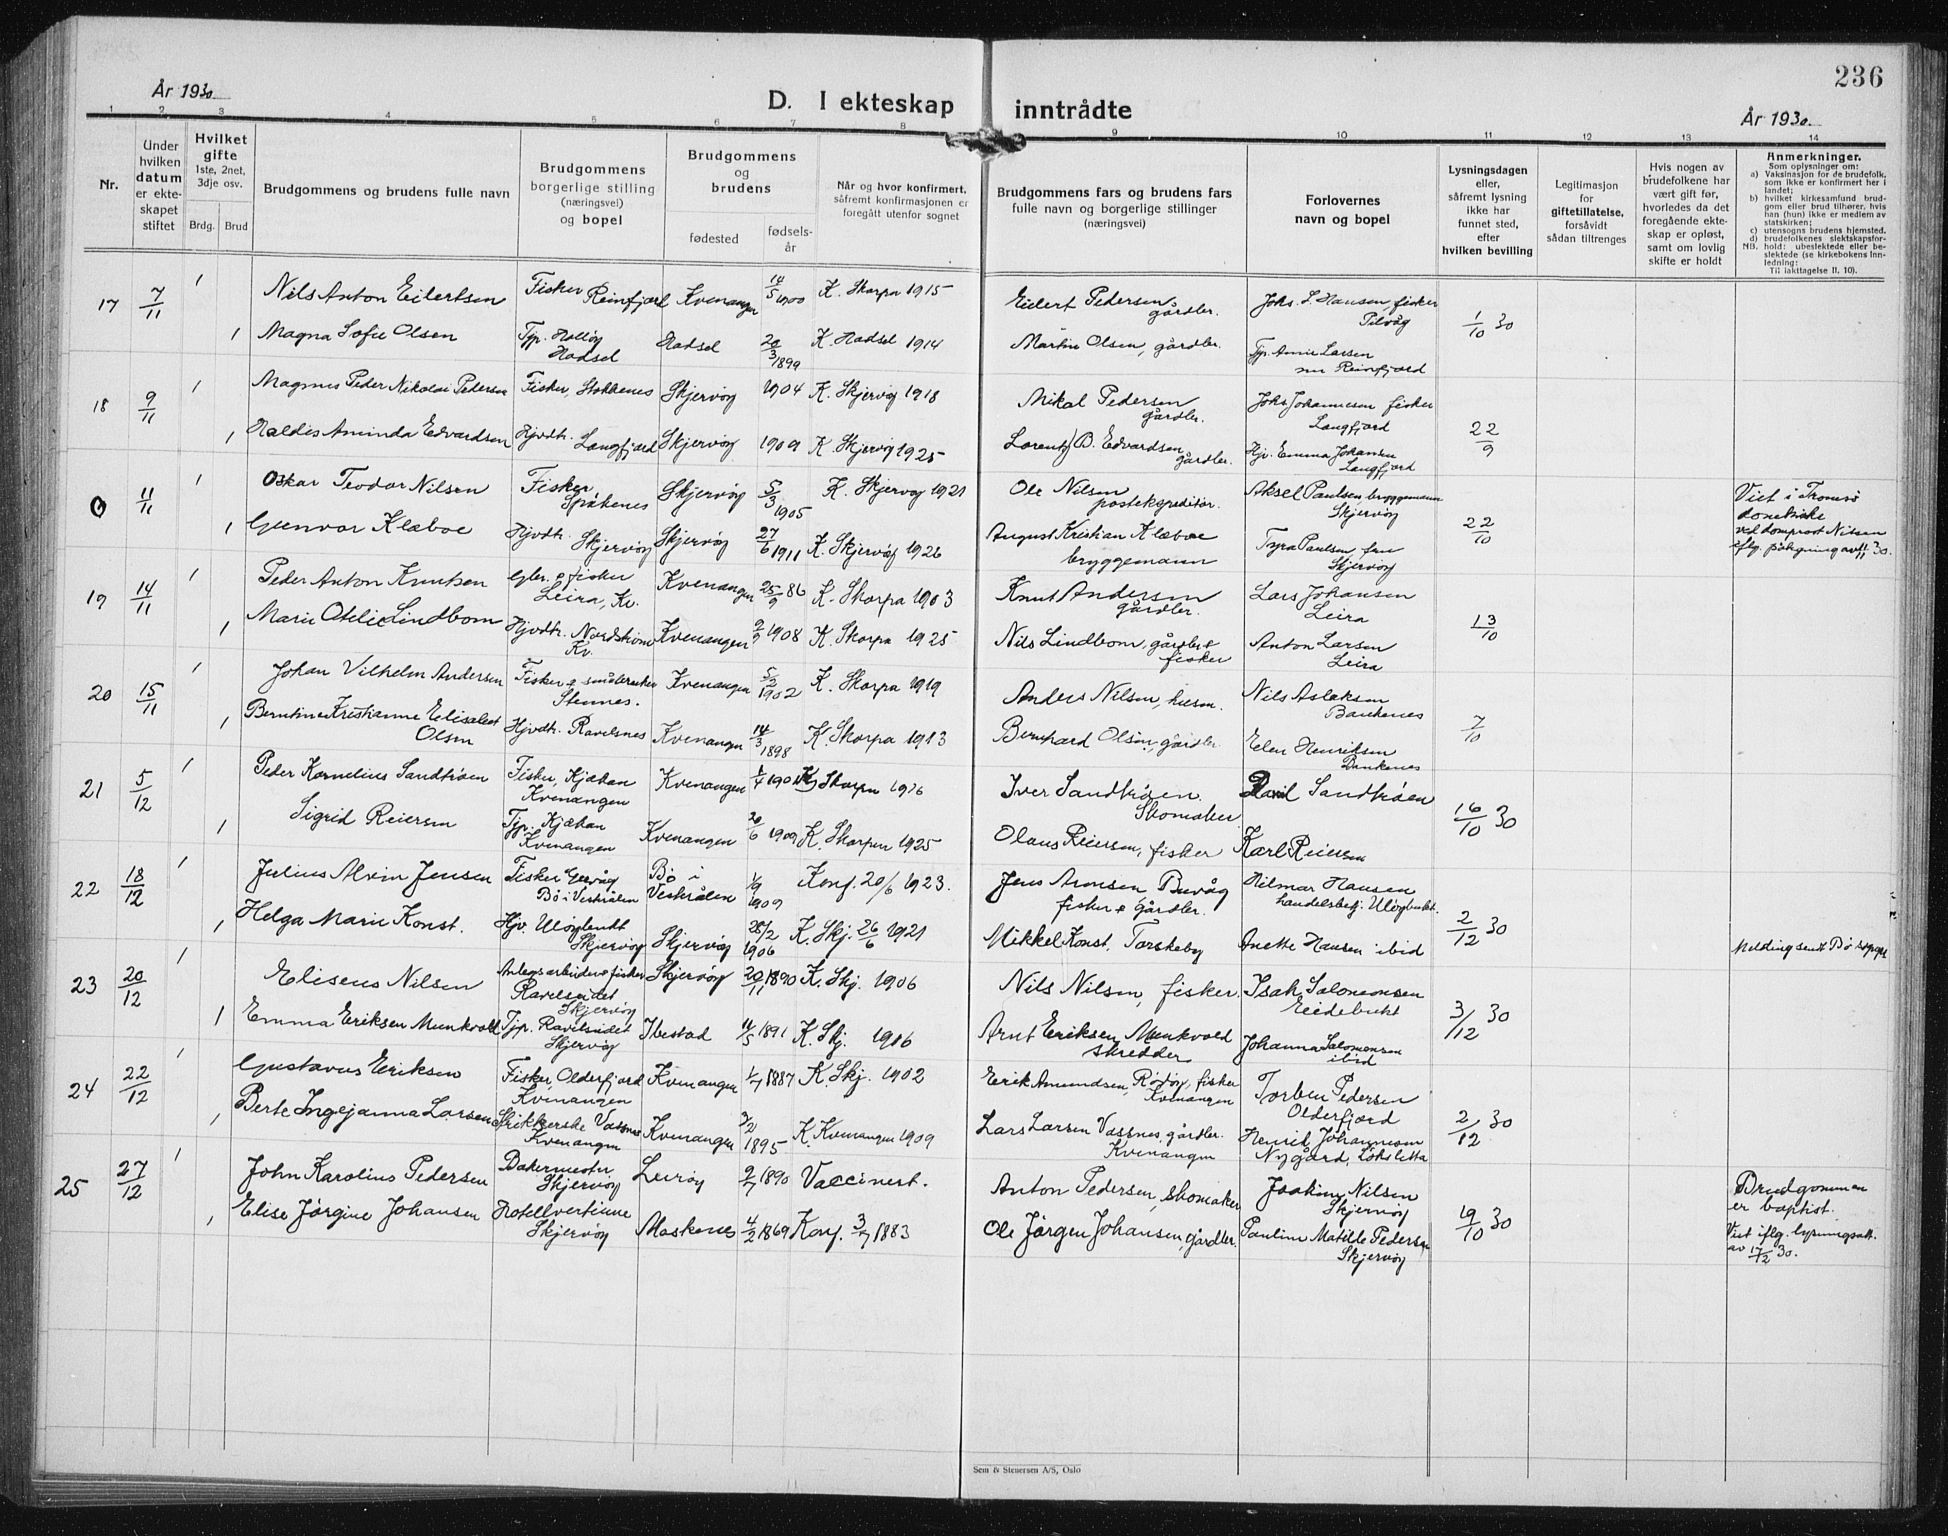 236
År 1930.
D. I ekteskap inntrådte
År 1930.
1 2 3 4 5 6 7 8 9 10 11 12 13 14
Nr.
Under hvilken datum er ekteskapet stiftet
Hvilket gifte
1ste, 2net, 3dje osv.
Brdg. Brud
Brudgommens og brudens fulle navn
Brudgommens borgerlige stilling (næringsvei) og bopel
Brudgommens og brudens
fødested
fødselsår
Når og hvor konfirmert, såfremt konfirmasjonen er foregått utenfor sognet
Brudgommens fars og brudens fars fulle navn og borgerlige stillinger (næringsvei)
Forlovernes navn og bopel
Lysningsdagen eller, såfremt lysning ikke har funnet sted, efter hvilken bevilling
Legitimasjon for giftetillatelse, forsåvidt sådan tiltrenges
Hvis nogen av brudefolkene har vært gift før, hvorledes da det foregående ekteskap er opløst, samt om lovlig skifte er holdt
Anmerkninger.
Som oplysninger om:
a) Vaksinasjon for de brudefolk, som ikke er konfirmert her i landet;
b) hvilket kirkesamfund brudgom eller brud tilhører, hvis han (hun) ikke er medlem av statskirken;
c) utensogns brudens hjemsted.
d) brudefolkenes slektskapsforhold: ubeslektede eller beslektede (se kirkebokens Innledning:
NB.
Til iakttagelse II, 10).
17 7/11 1 Nils Anton Eilertsen Fisker Reinfjord Kvenangen 14/5 1900 K. Skorpa 1915 Eilert Pedersen gårdbr. Johs. L. Hansen, fisker 1/10 30
1 Magna Sofie Olsen Tjp. Hadsel Hadsel 20/3 1899 K. Hadsel 1914 Martin Olsen, gårdbr. Tjp. Annie Larsen Reinfjord
18 9/11 1 Magnus Peder Nikolai Pedersen Fisker, Stokkenes Skjervøy 1904 K. Skjervøy 1918 Mikal Pedersen gårdbr. Johs Johannesen fisker Langfjord 22/9
1 Haldis Aminda Edvardsen Hjvdtr. Langfjord Skjervøy 1909 K. Skjervøy 1925 Lorentz B. Edvardsen gårdbr. Hjv. Emma Johansen Langfjord
0 11/11 1 Oskar Teodor Nilsen Fisker Spåkenes Skjervøy 5/3 1905 K. Skjervøy 1921 Ole Nilsen postekspeditør. Aksel Paulsen bryggemann Skjervøy 22/10 Viet i Tromsø domkirke ved domprost Nilsen iflg. påtegning av 11/11 30.
1 Gunvor Klæboe Hjvdtr. Skjervøy Skjervøy 27/6 1911 K. Skjervøy 1926 August Kristian Klæboe bryggemann Tyra Paulsen, fru Skjervøy
19 14/11 1 Peder Anton Knutsen Gbr. & fisker Leira, Kv. Kvenangen 25/9 86 K. Skorpa 1903 Knut Andersen gårdbr. Lars Johansen Leira 13/10
1 Marie Otelie Lindbom Hjvdtr. Nordstrøm Kv. Kvenangen 9/9 1908 K. Skorpa 1925 Nils Lindbom, gårdbr & fisker Anton Larsen Leira
20 15/11 1 Johan Vilhelm Andersen Fisker & småbruker Stennes. Kvenangen 5/2 1902 K. Skorpa 1919 Anders Nilsen, husm. Nils Aslaksen Baukenes 7/10
1 Berntine Kristianne Elisabet Olsen Hjvdtr. Ravelsnes Kvenangen 14/3 1898 K. Skorpa 1913 Bernhard Olsen, gårdbr. Elen Henriksen Baukenes
21 5/12 1 Peder Kornelius Sandtrøen Fisker, Kjækan Kvenangen Kvenangen 1/4 1901 K. Skorpa 1916 Iver Sandtrøen. Skomaker Sandtrøen 16/10 30
1 Sigrid Reiersen Tjp. Kjækan Kvenangen Kvenangen 20/6 1909 K. Skorpa 1925 Olaus Reiersen, fisker Karl Reiersen
22 18/12 1 Julius Alvin Jensen Fisker Bø i Vesterålen Bø i Vesterålen 1/9 1909 Konf. 20/6 1923. Jens Aronsen Buvåg fisker & gårdbr. Hilmar Hansen handelsbetj. Uløybukt. 2/12 30
1 Helga Marie Konst. Hjv. Uløybukt Skjervøy Skjervøy 28/2 1906 K. Skj. 26/6 1921 Mikkel Konst, Torskeby Anette Hansen ibid Melding sendt Bø sogepr.
23 20/12 1 Eliseus Nilsen Anlegsarbeider & fisker Ravelseidet Skjervøy Skjervøy 20/11 1890 K. Skj. 1906 Nils Nilsen, fisker. Isak Salomonsen Eidebukt 3/12 30
1 Emma Eriksen Munkvold Tjp. Ravelseidet Skjervøy Ibestad 14/5 1891 K. Skj. 1906 Arnt Eriksen Munkvold skredder Johanna Salomonsen ibid
24 22/12 1 Gustavus Eriksen Fisker, Olderfjord Kvenangen Kvenangen 1/7 1887 K. Skj. 1902 Erik Amundsen, Rødøy, fisker Kvenangen Torben Pedersen Olderfjord 2/12 30
1 Berte Ingejanna Larsen Strikkerske Vassnes Kvenangen Kvenangen 3/2 1895 K. Kvenangen 1909 Lars Larsen Vassnes, gårdbr. Kvenangen Henrik Johannesen Nygård, Løksletta
25 27/12 1 John Karolius Pedersen Bakermester Skjervøy Lurøy 2/7 1890 Vaccinert. Anton Pedersen, skomaker Joakim Nilsen Skjervøy 19/10 30 Brudgommen er baptist.
1 Elise Jörgine Johansen Hotellvertinne Skjervøy Moskenes 4/2 1869 Konf. 3/7 1883 Ole Jörgen Johansen, gårdbr. Pauline Matilde Pedersen Skjervøy Viet iflg. lysningsatt. av 17/12 30.
Sem & Stenersen A/S, Oslo